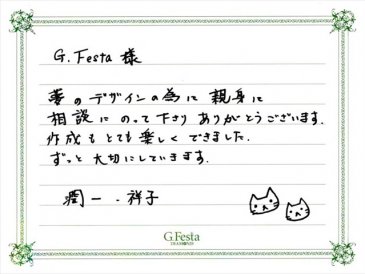 G.Festa 様
夢のデザインの為に 親身に
相談に のって下さり ありがとうございます.
作成も とても 楽しく できました.
ずっと 大切にしていきます.
潤一・祥子
G.Festa